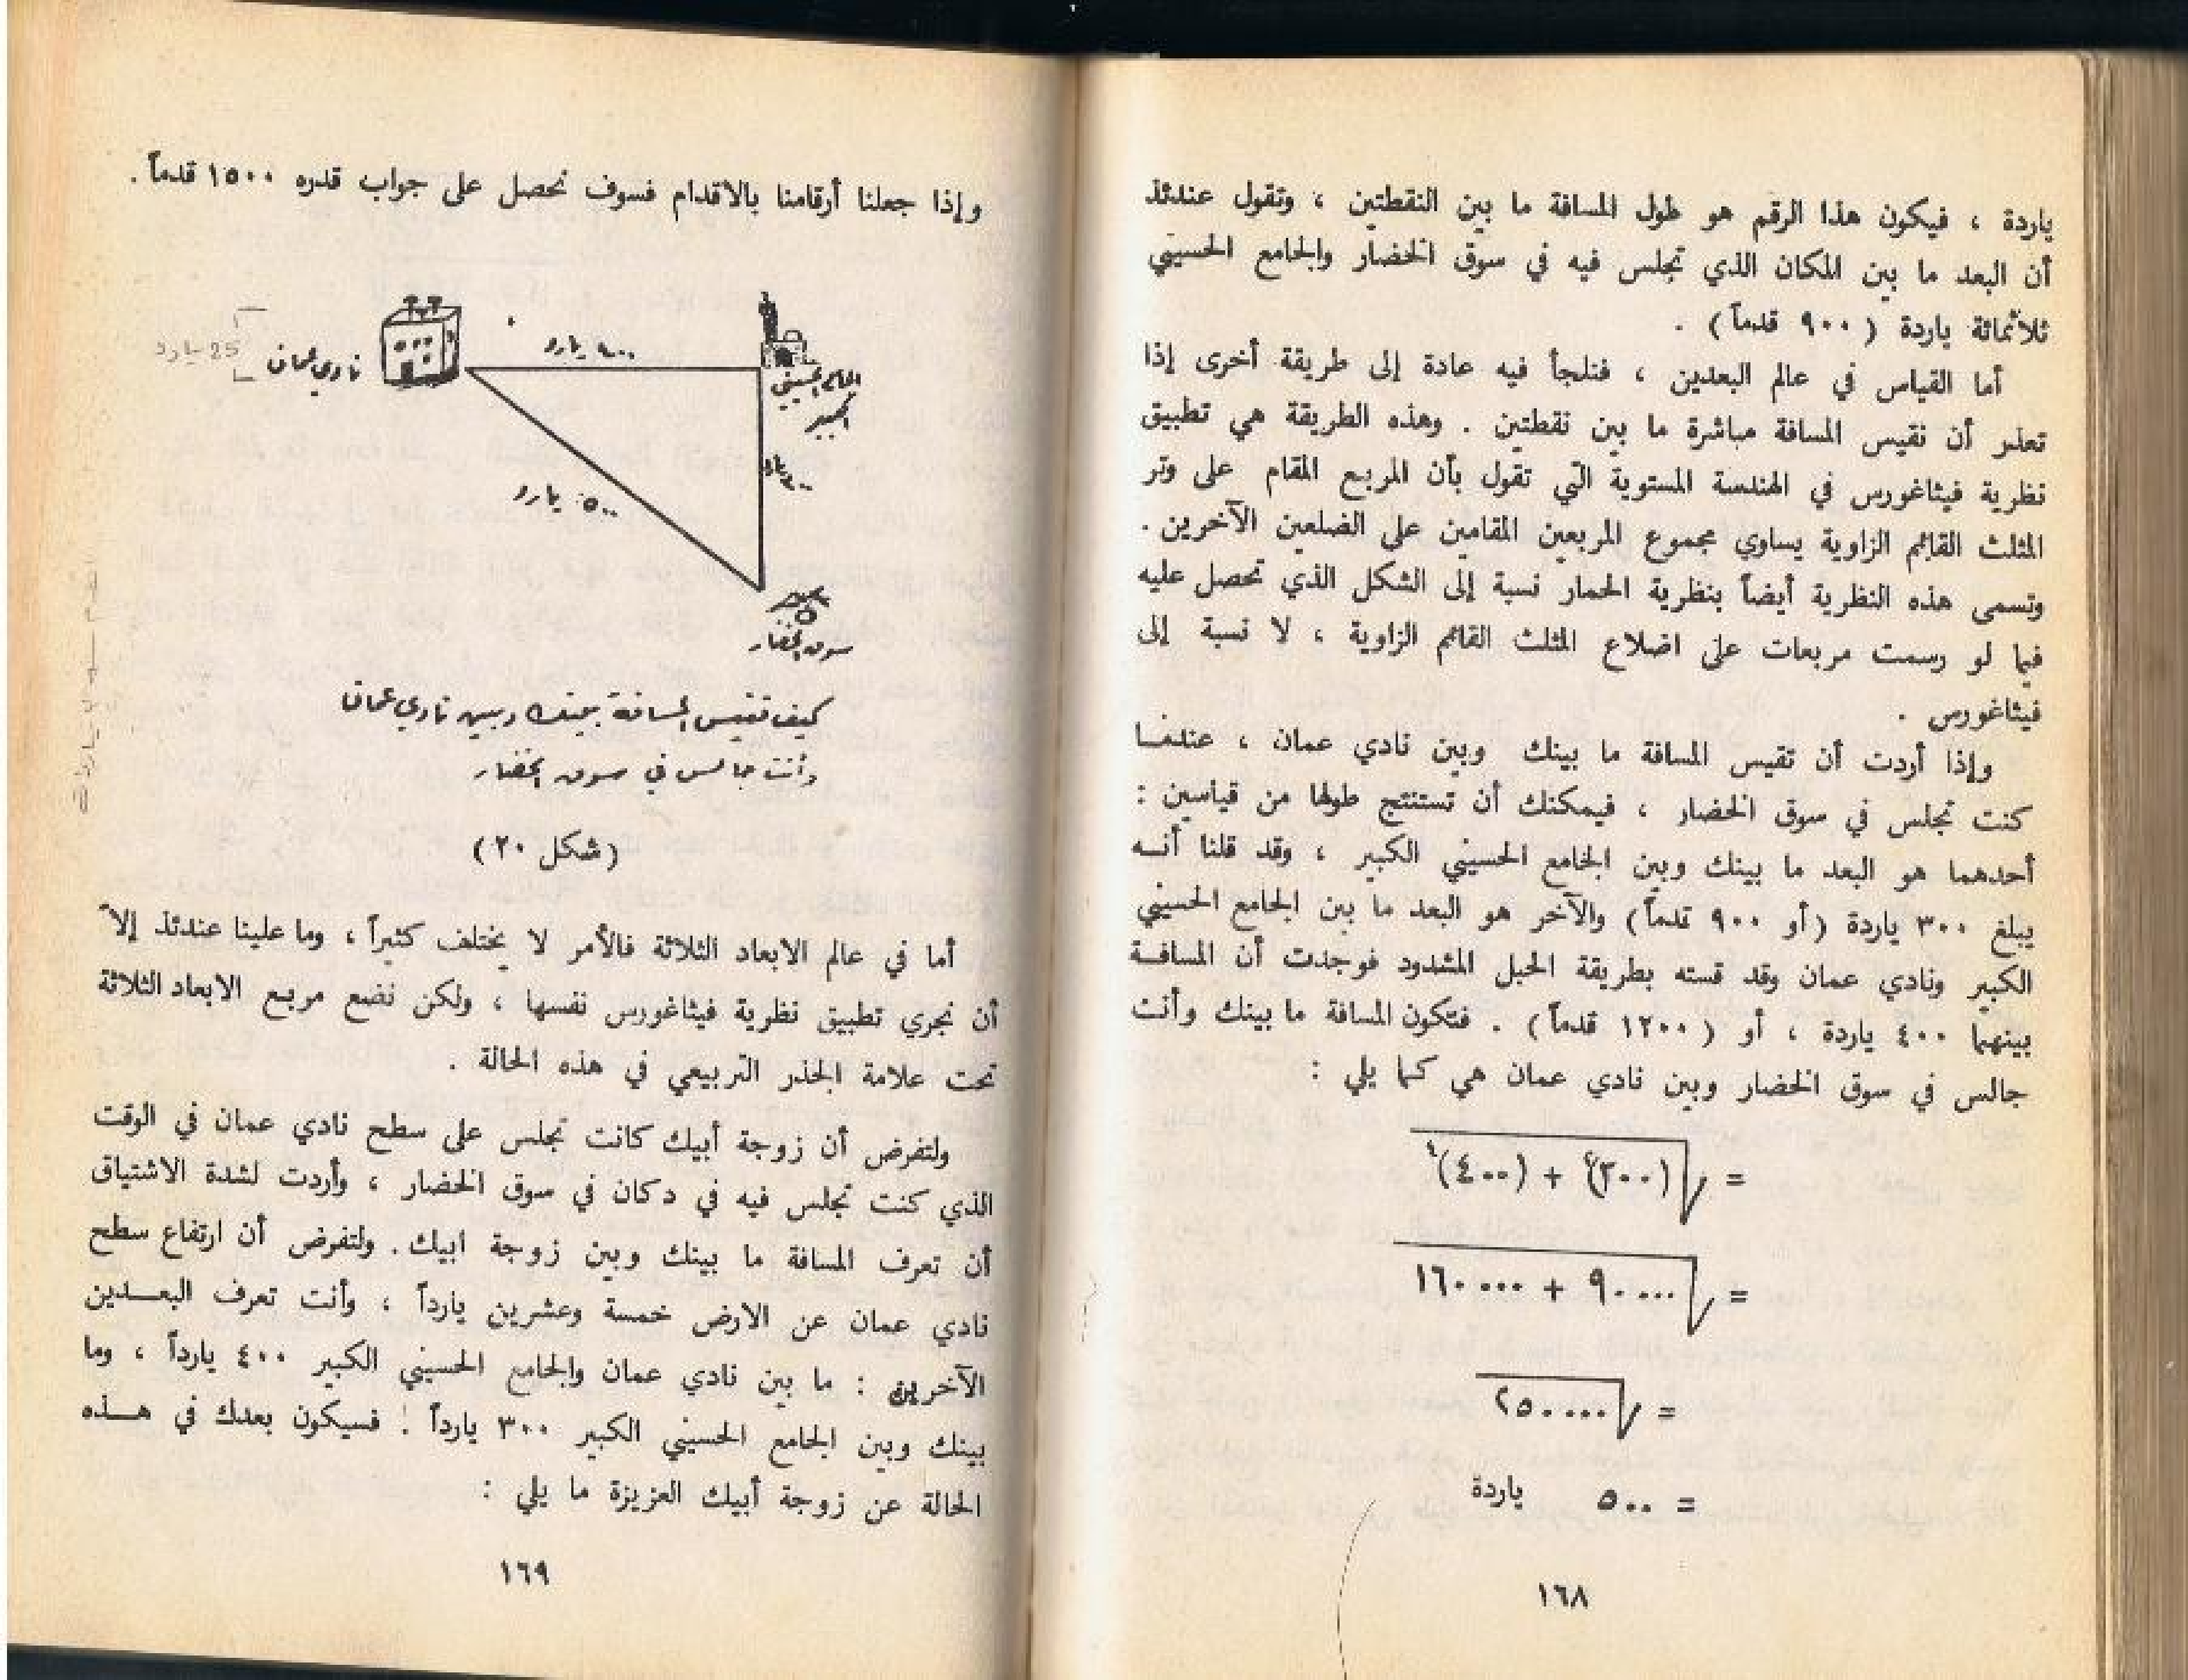 ياردة ، فيكون هذا الرقم هو طول المسافة ما بين النقطتين ، وتقول عندئذ
أن البعد ما بين المكان الذي تجلس فيه في سوق الخضار والجامع الحسيني
ثلاثمائة ياردة ( ٩٠٠ قدماً ) .
أما القياس في عالم البعدين ، فنلجأ فيه عادة إلى طريقة أخرى إذا
تعذر أن نقيس المسافة مباشرة ما بين نقطتين . وهذه الطريقة هي تطبيق
نظرية فيثاغورس في الهندسة المستوية التي تقول بأن المربع المقام على وتر
المثلث القائم الزاوية يساوي مجموع المربعين المقامين على الضلعين الآخرين .
وتسمى هذه النظرية أيضاً بنظرية الحمار نسبة إلى الشكل الذي تحصل عليه
فيما لو رسمت مربعات على اضلاع المثلث القائم الزاوية ، لا نسبة إلى
فيثاغورس .
وإذا أردت أن تقيس المسافة ما بينك وبين نادي عمان ، عندما
كنت تجلس في سوق الخضار ، فيمكنك أن تستنتج طولها من قياسين :
أحدهما هو البعد ما بينك وبين الجامع الحسيني الكبير ، وقد قلنا أنه
يبلغ ٣٠٠ ياردة (أو ٩٠٠ قدماً) والآخر هو البعد ما بين الجامع الحسيني
الكبير ونادي عمان وقد قسته بطريقة الحبل المشدود فوجدت أن المسافة
بينهما ٤٠٠ ياردة ، أو ( ١٢٠٠ قدماً ) . فتكون المسافة ما بينك وأنت
جالس في سوق الخضار وبين نادي عمان هي كما يلي :
= √(٣٠٠)٢ + (٤٠٠)٢
= √٩٠٠٠٠ + ١٦٠٠٠٠
= √٢٥٠٠٠٠
= ٥٠٠ ياردة
١٦٨
وإذا جعلنا أرقامنا بالاقدام فسوف نحصل على جواب قدره ١٥٠٠ قدماً .
25 يارد
نادي عمان
٤٠٠ يارد
الجامع الحسيني
الكبير
٣٠٠ يارد
٥٠٠ يارد
سوق الخضار
كيف تقيس المسافة بينك وبين نادي عمان
وأنت جالس في سوق الخضار
(شكل ٢٠)
أما في عالم الابعاد الثلاثة فالأمر لا يختلف كثيراً ، وما علينا عندئذ إلا
أن نجري تطبيق نظرية فيثاغورس نفسها ، ولكن نضع مربع الابعاد الثلاثة
تحت علامة الجذر التربيعي في هذه الحالة .
ولتفرض أن زوجة أبيك كانت تجلس على سطح نادي عمان في الوقت
الذي كنت تجلس فيه في دكان في سوق الخضار ، وأردت لشدة الاشتياق
أن تعرف المسافة ما بينك وبين زوجة ابيك . ولتفرض أن ارتفاع سطح
نادي عمان عن الارض خمسة وعشرين يارداً ، وأنت تعرف البعدين
الآخرين : ما بين نادي عمان والجامع الحسيني الكبير ٤٠٠ يارداً ، وما
بينك وبين الجامع الحسيني الكبير ٣٠٠ يارداً : فسيكون بعدك في هذه
الحالة عن زوجة أبيك العزيزة ما يلي :
١٦٩